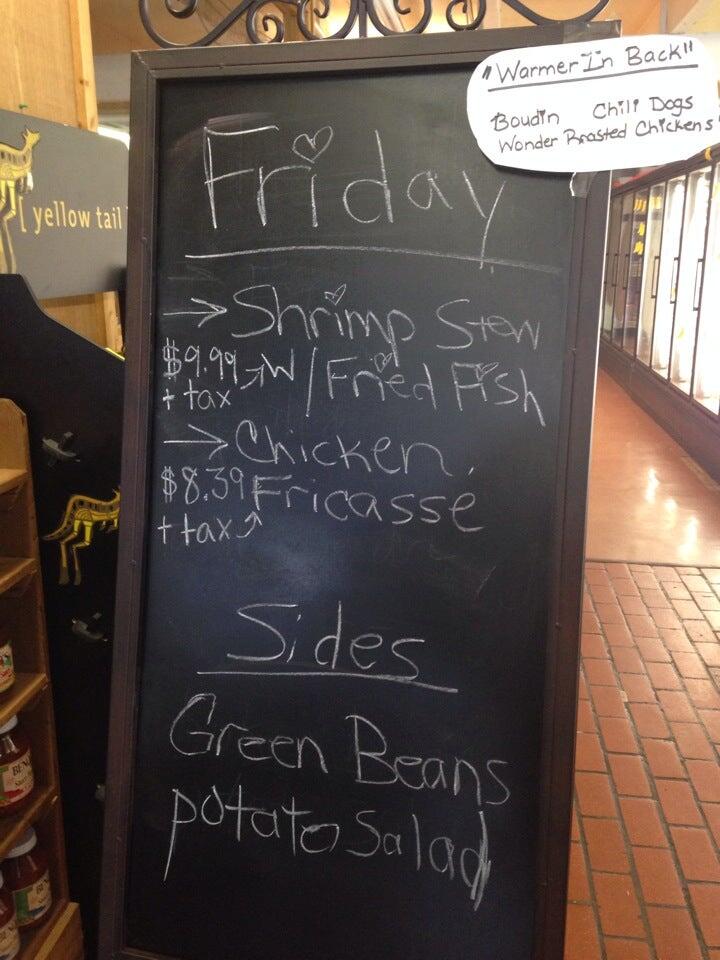 "Warmer In Back"
Boudin Chili Dogs
Wonder Roasted Chickens
Friday
[ yellow tail
→ Shrimp Stew
$9.99 → W/Fried Fish
+ tax
→ Chicken
$8.39 Fricasse
+ tax
Sides
Green Beans
potato Salad